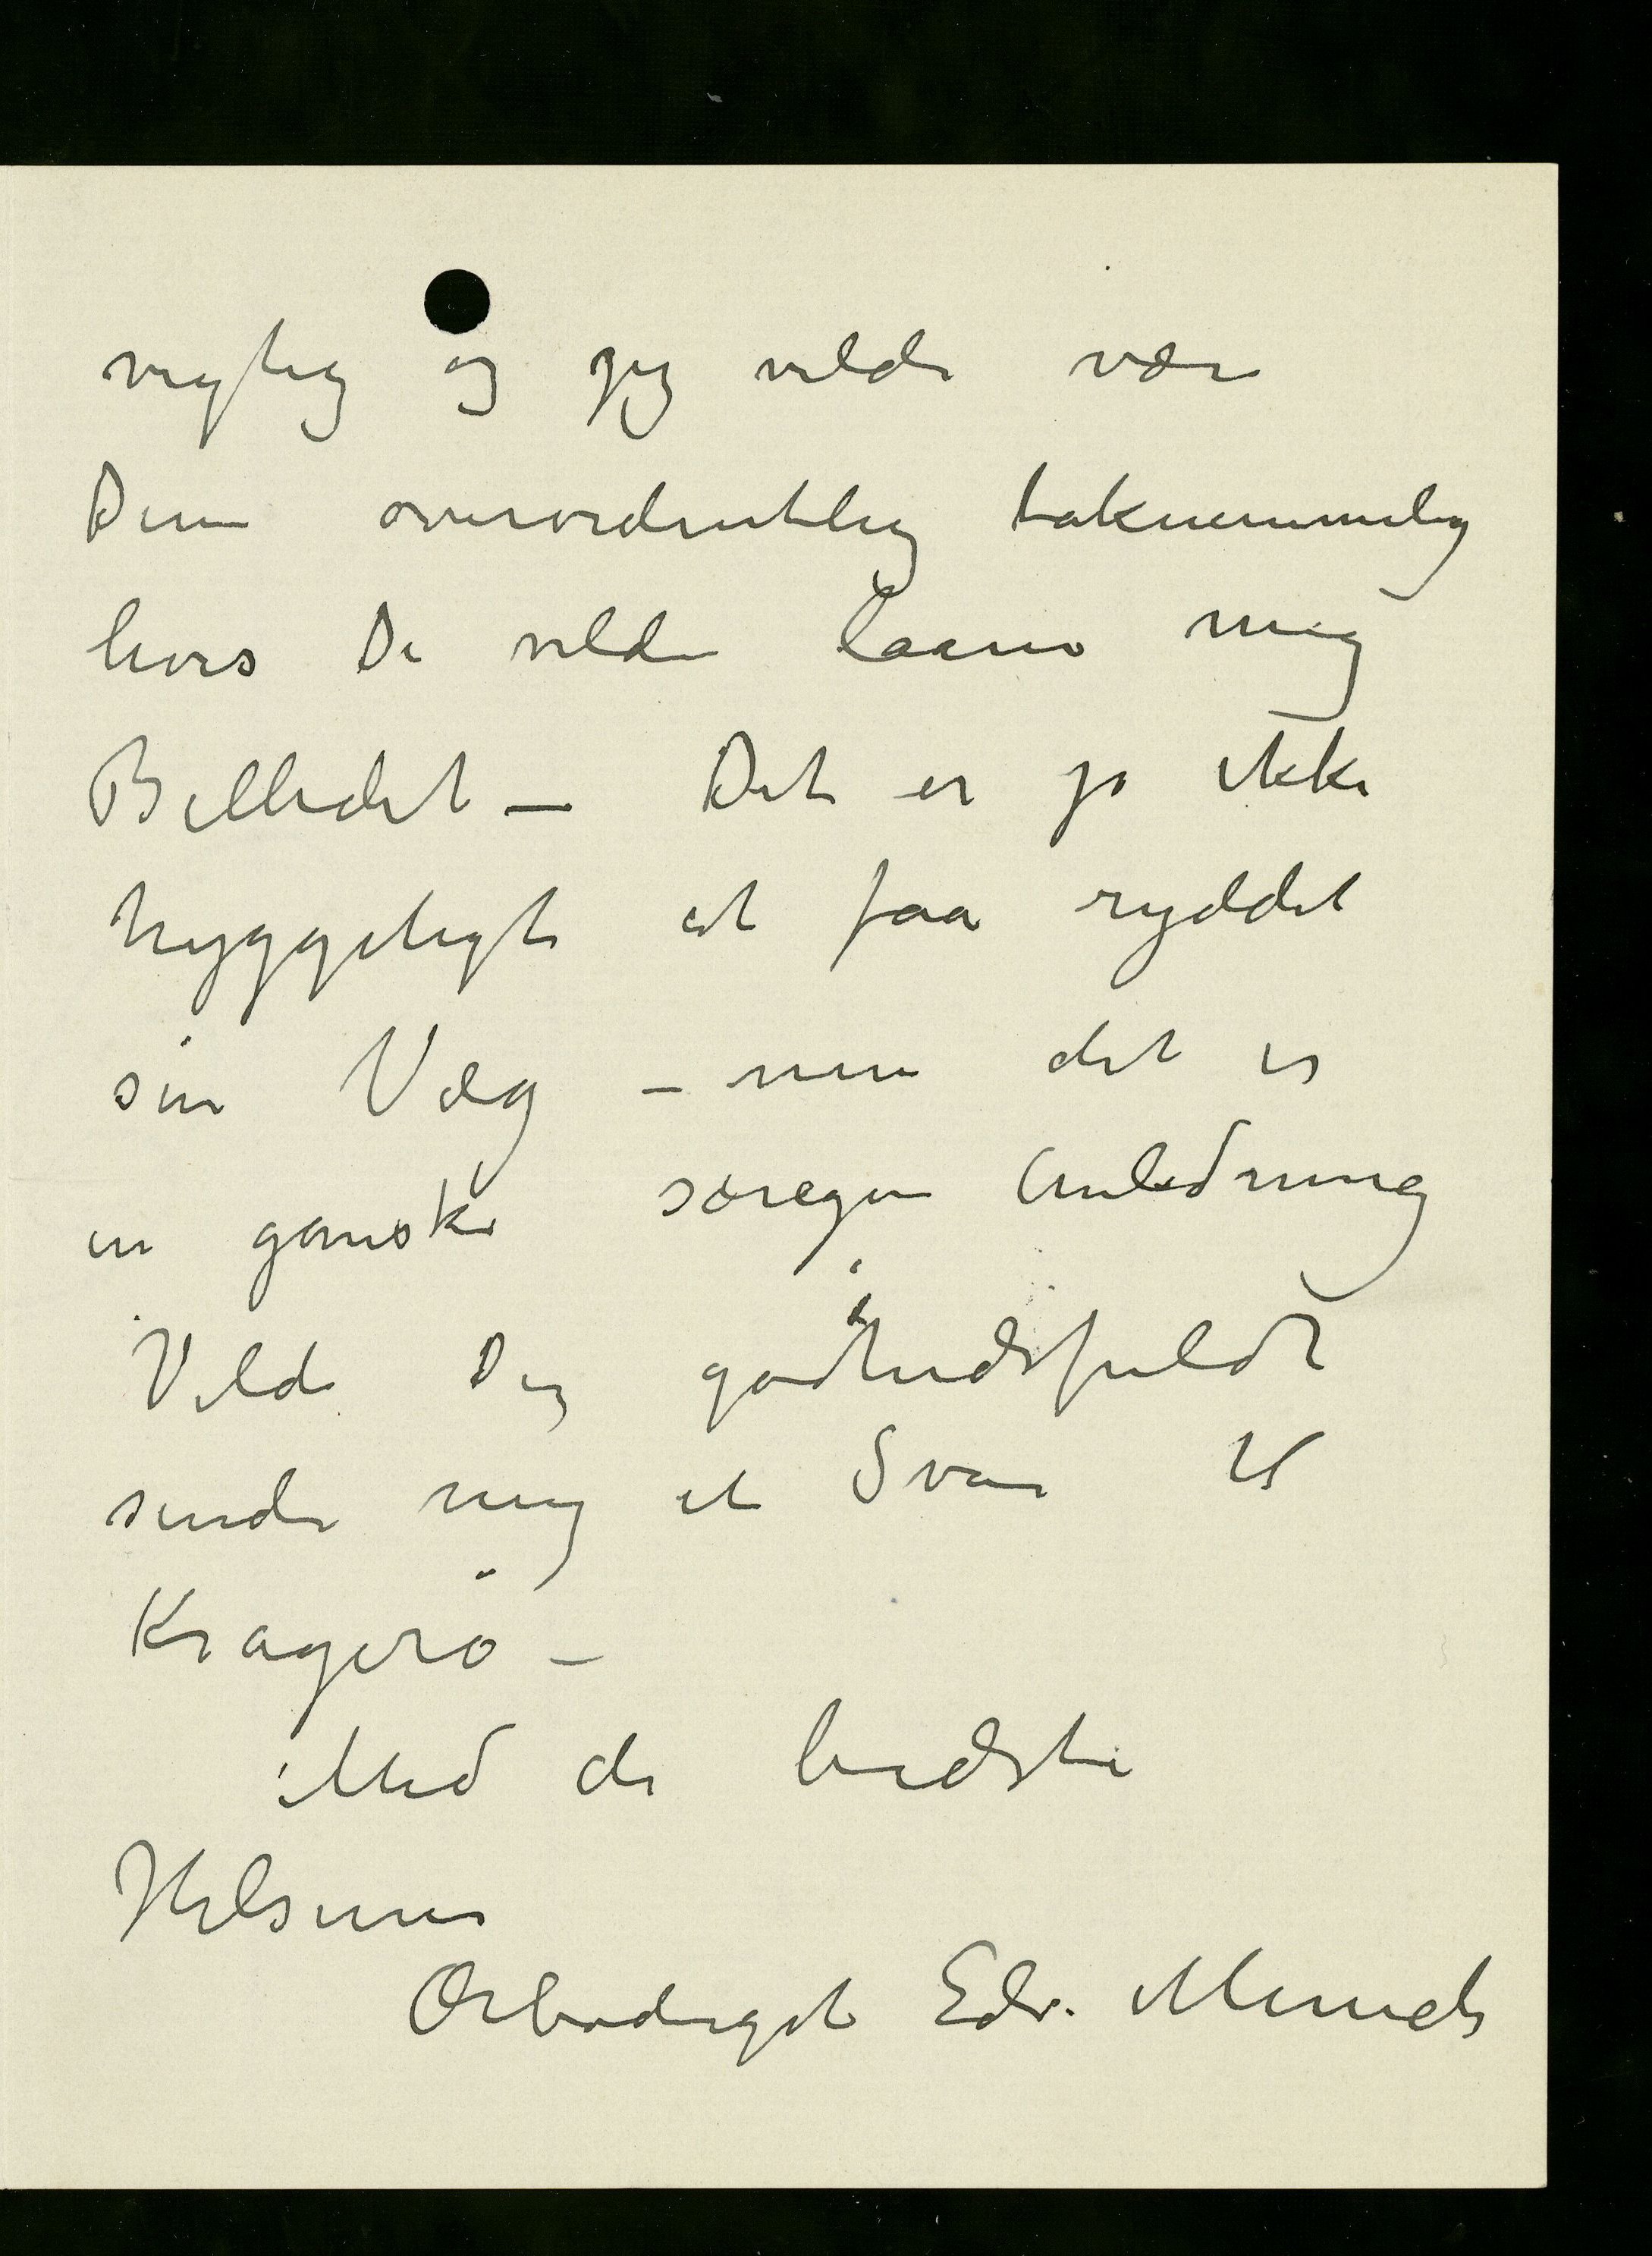 vigtig og jeg vilde være
Dem overordentlig taknemmelig
hvis De vilde laane mig
Billedet – Det er jo ikke
hyggeligt at faa ryddet
sin Væg – men det er
en ganske særegen Anledning
Vilde De godhedsfuldt
sende mig et Svar til
Kragerö –
Med de bedste
Hilsener
Ærbødigst Edv. Munch